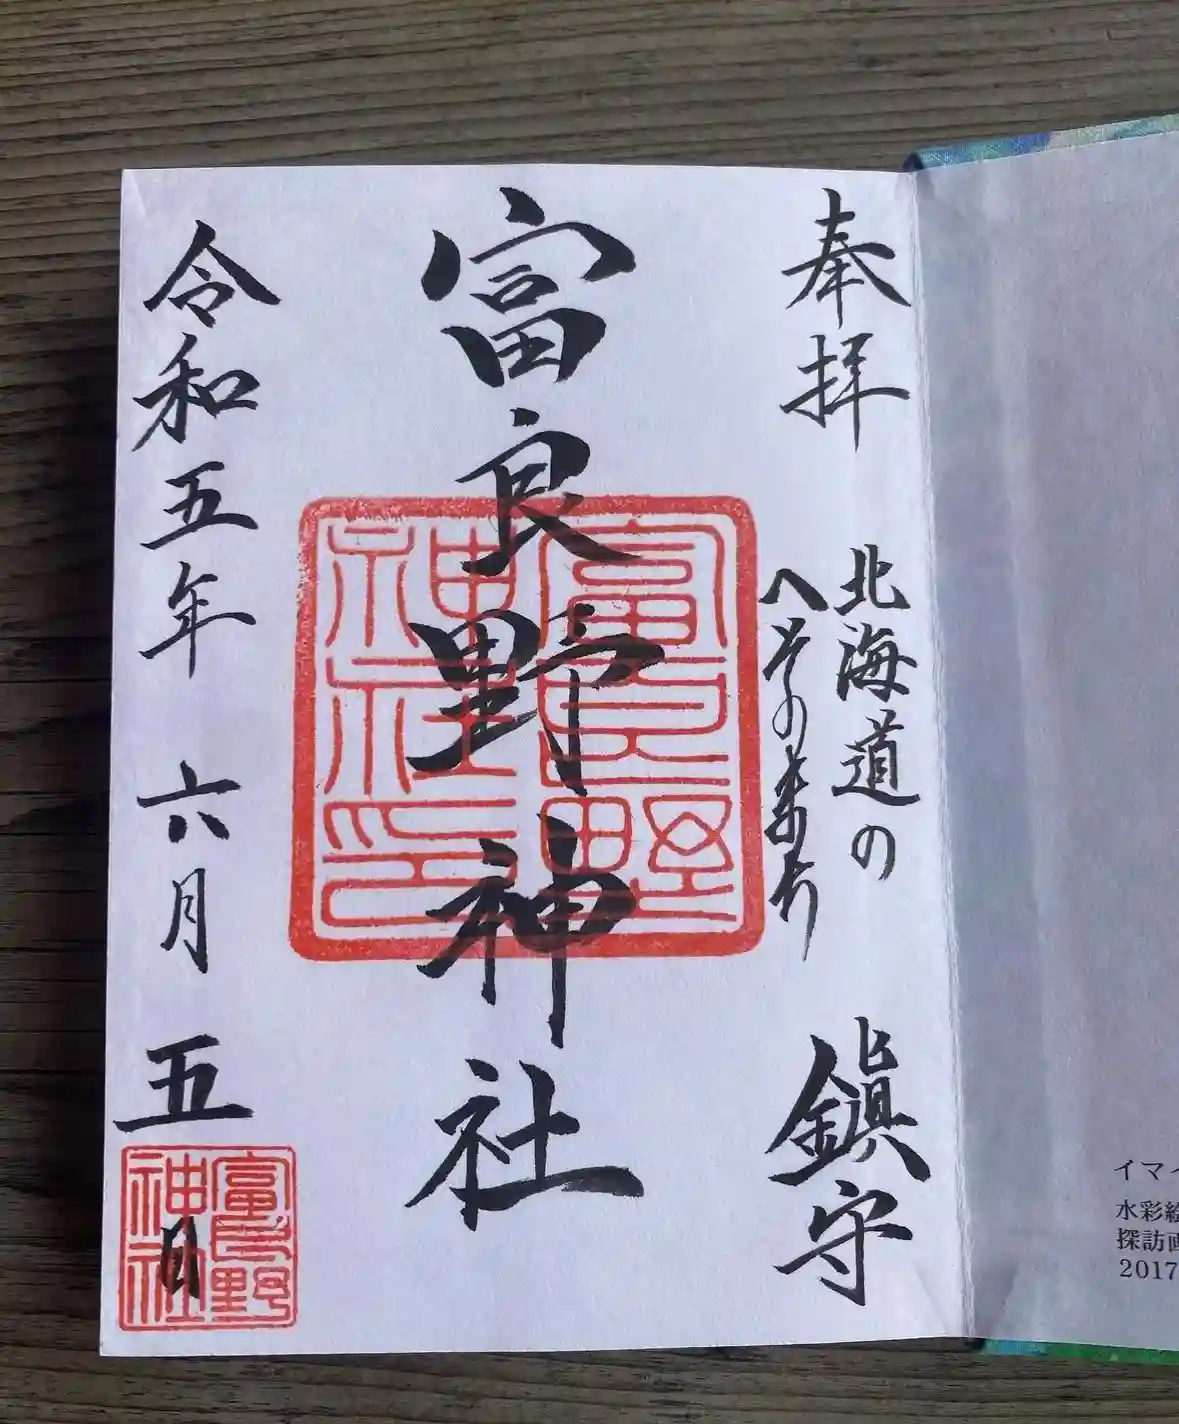 奉拝
北海道の
へそのまち
鎭守
富良野神社
富良野
神社印
令和五年六月五日
富良野
神社
イマイ
水彩絵
探訪画
2017